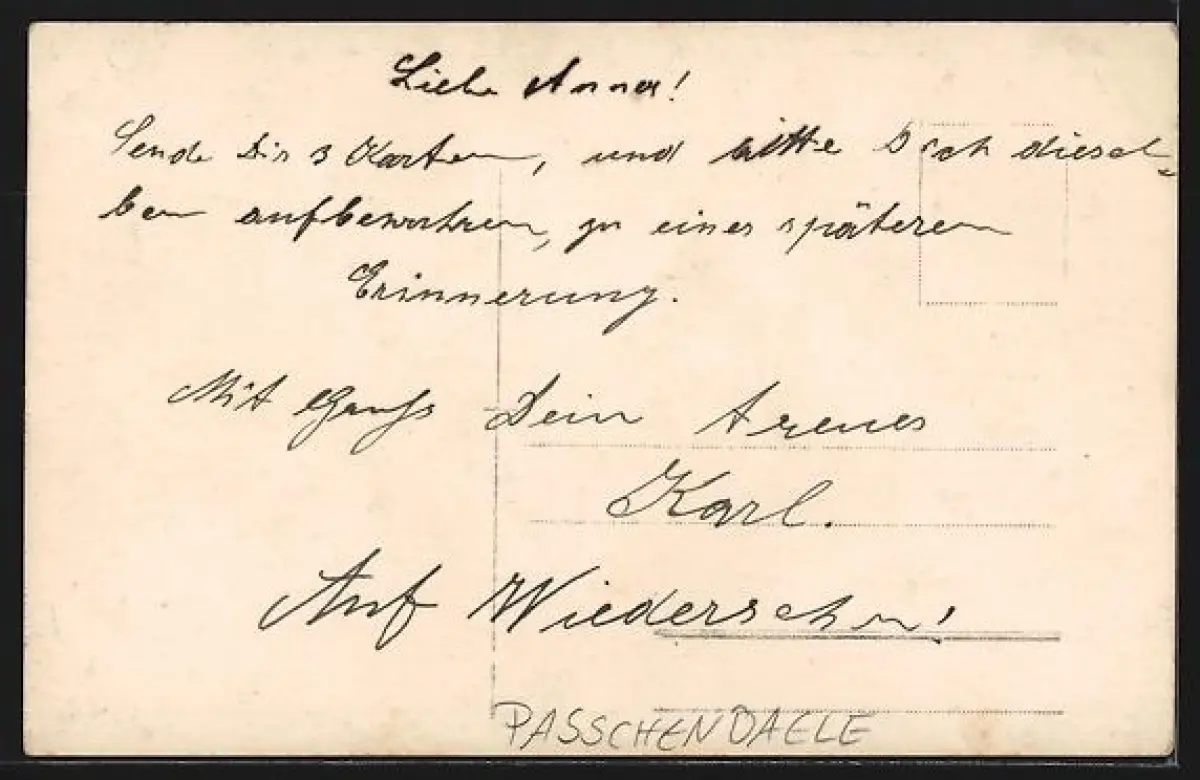 Liebe Anna!
Sende Dir 3 Karten, und bitte Dich diesel-
ben aufbewahren, zu einer späteren
Erinnerung.
Mit Gruß Dein treues
Karl.
Auf Wiedersehn!
PASSCHENDAELE